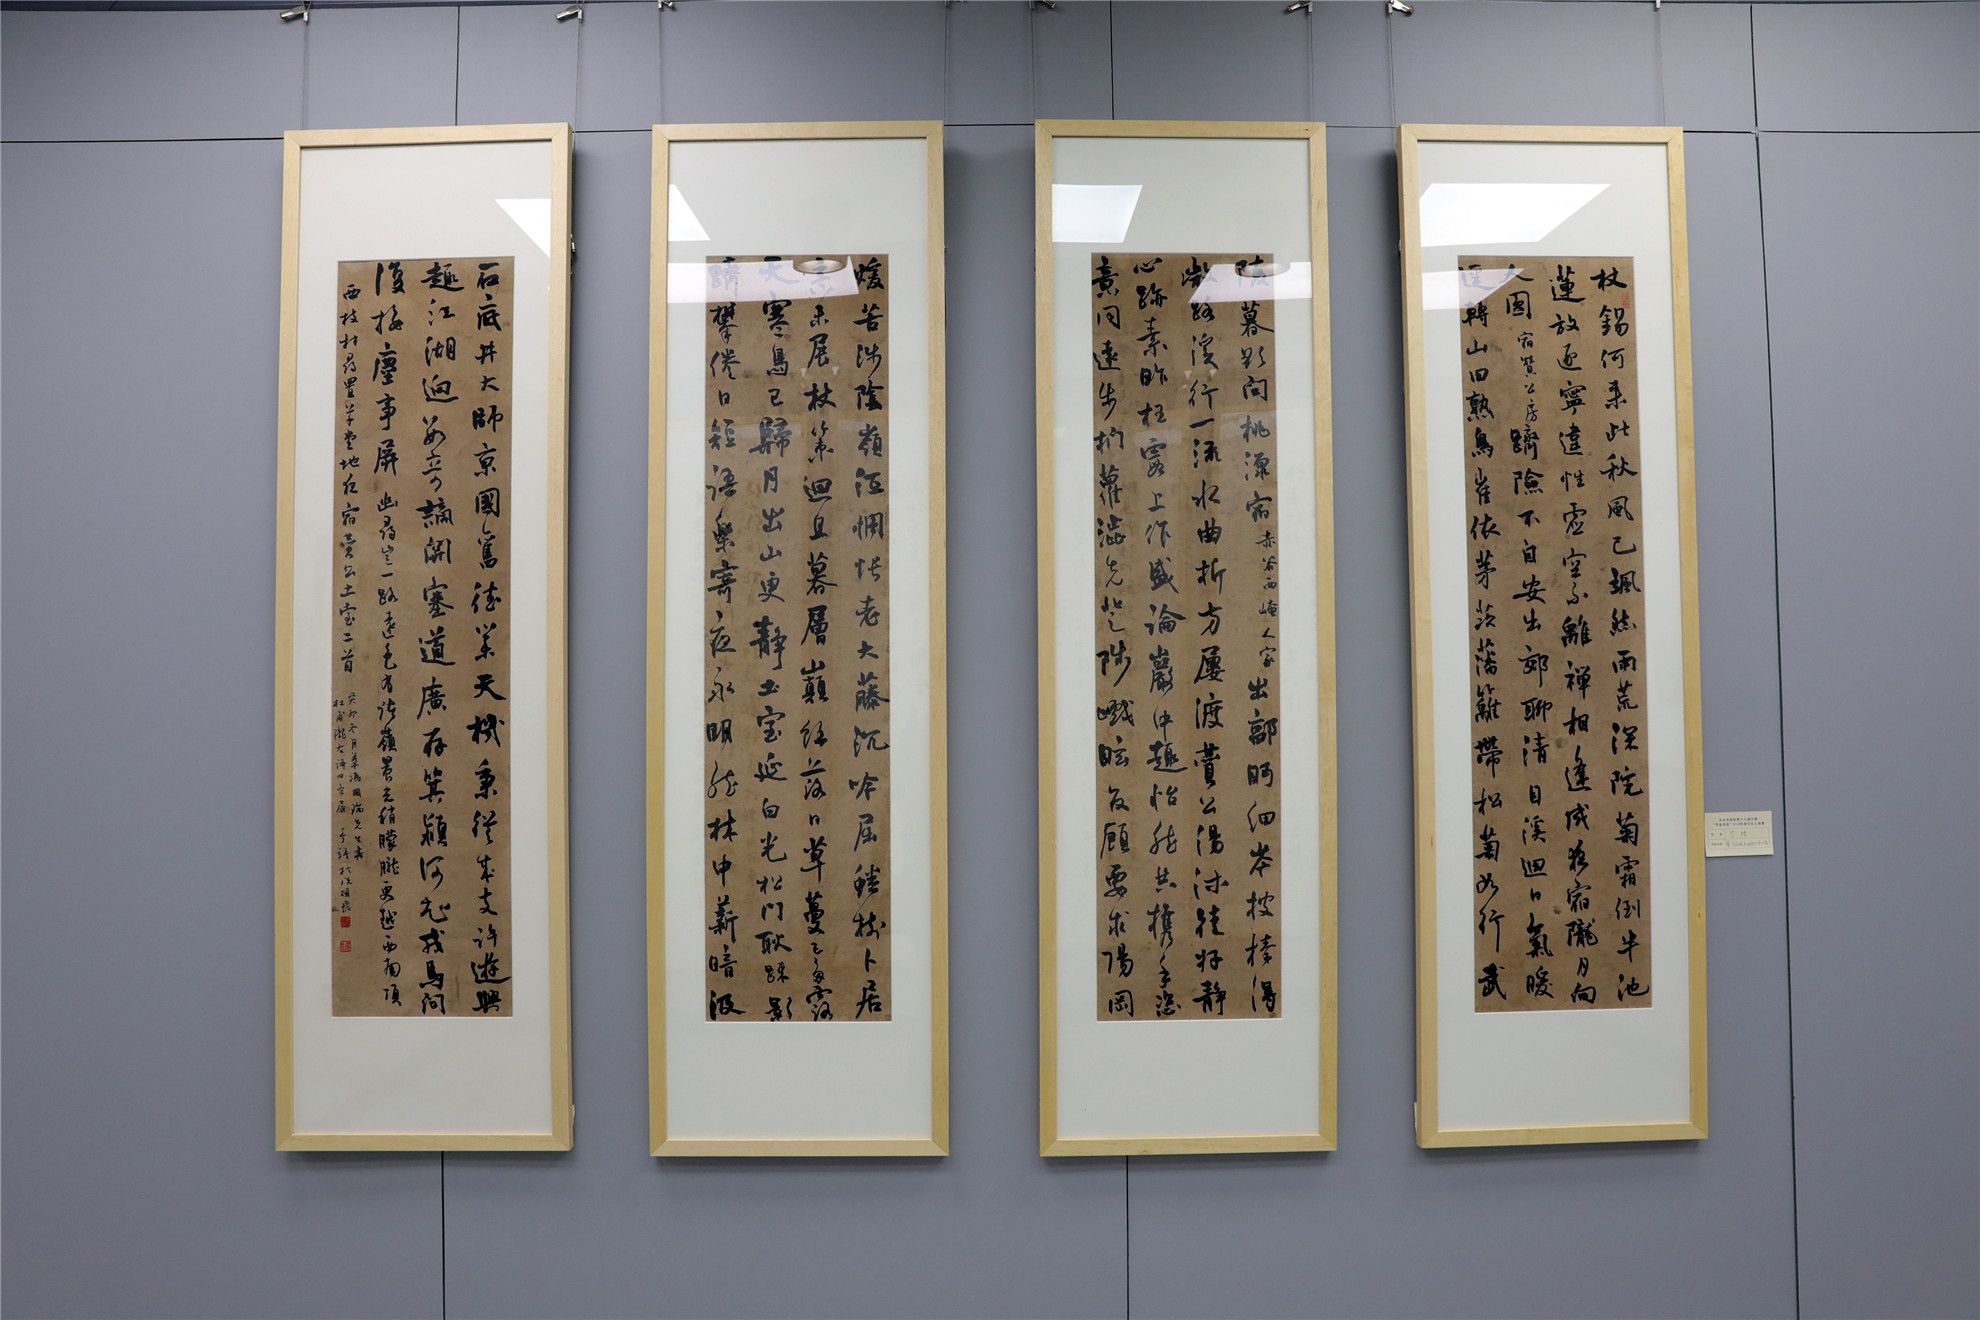 杖錫何来此秋風已颯然雨荒深院菊霜倒半池
蓮放逐寧違性虛空不離禪相逢成夜宿隴月向
人圓 宿贊公房 躋險不自安出郊聊清目溪迴日氣暖
逕轉山田熟鳥雀依茅茨藩籬帶松菊如行武
陵暮欲問桃源宿 赤谷西崦人家 出郭眄細岑披榛得
微路溪行一流水曲折方屢渡贊公湯休徒好靜
心跡素昨枉霞上作盛論巖中趣怡然共攜手恣
意同遠步捫蘿澀先登陟巘眩反顧要求陽岡
暖苦涉陰嶺沍惆悵老大藤沉吟屈蟠樹卜居
意未展杖策迴且暮層巔餘落日草蔓已多露
天寒鳥已歸月出山更靜土室延白光松門耿疎影
躋攀倦日短語樂寄夜永明然林中薪暗汲
石底井大師京國舊德業天機秉從来支許遊興
趣江湖迥數奇謫關塞道廣存箕潁何知戎馬間
復接塵事屏幽尋豈一路遠色有諸嶺晨光稍朦朧更越西南頂
西枝村尋置草堂地夜宿贊公土室二首
癸卯冬月 馮國瑞先生
杜甫隴右詩四条屏